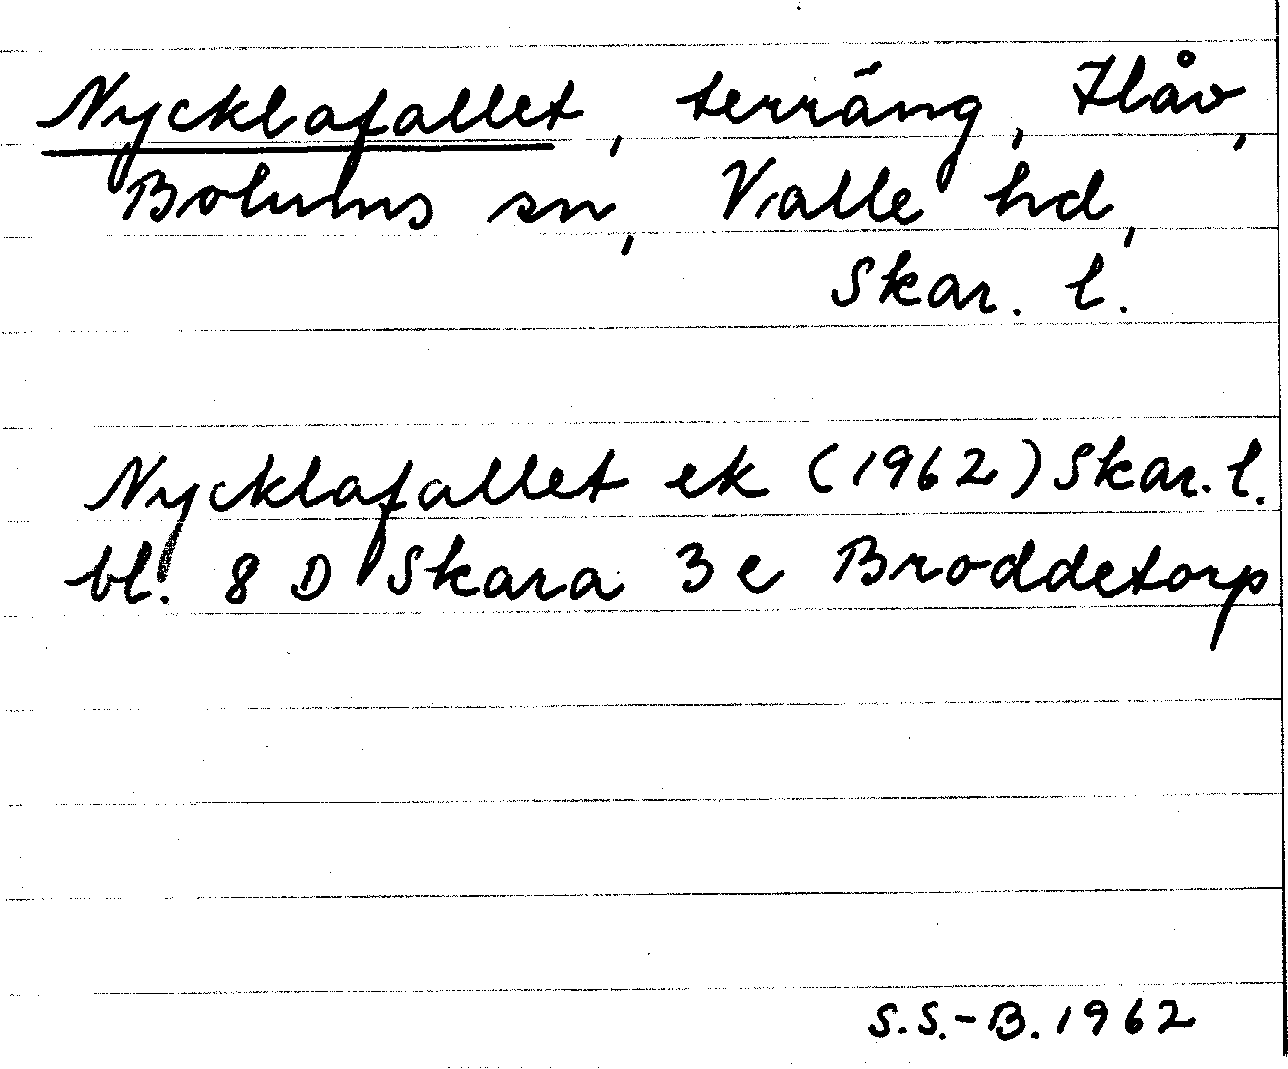 Nycklafallet, terräng, Flåv,
Bolums sn, Valle hd,
Skar. l.
Nycklafallet ek (1962) Skar. l.
bl. 8 D Skara 3e Broddetorp
S.S.-B. 1962